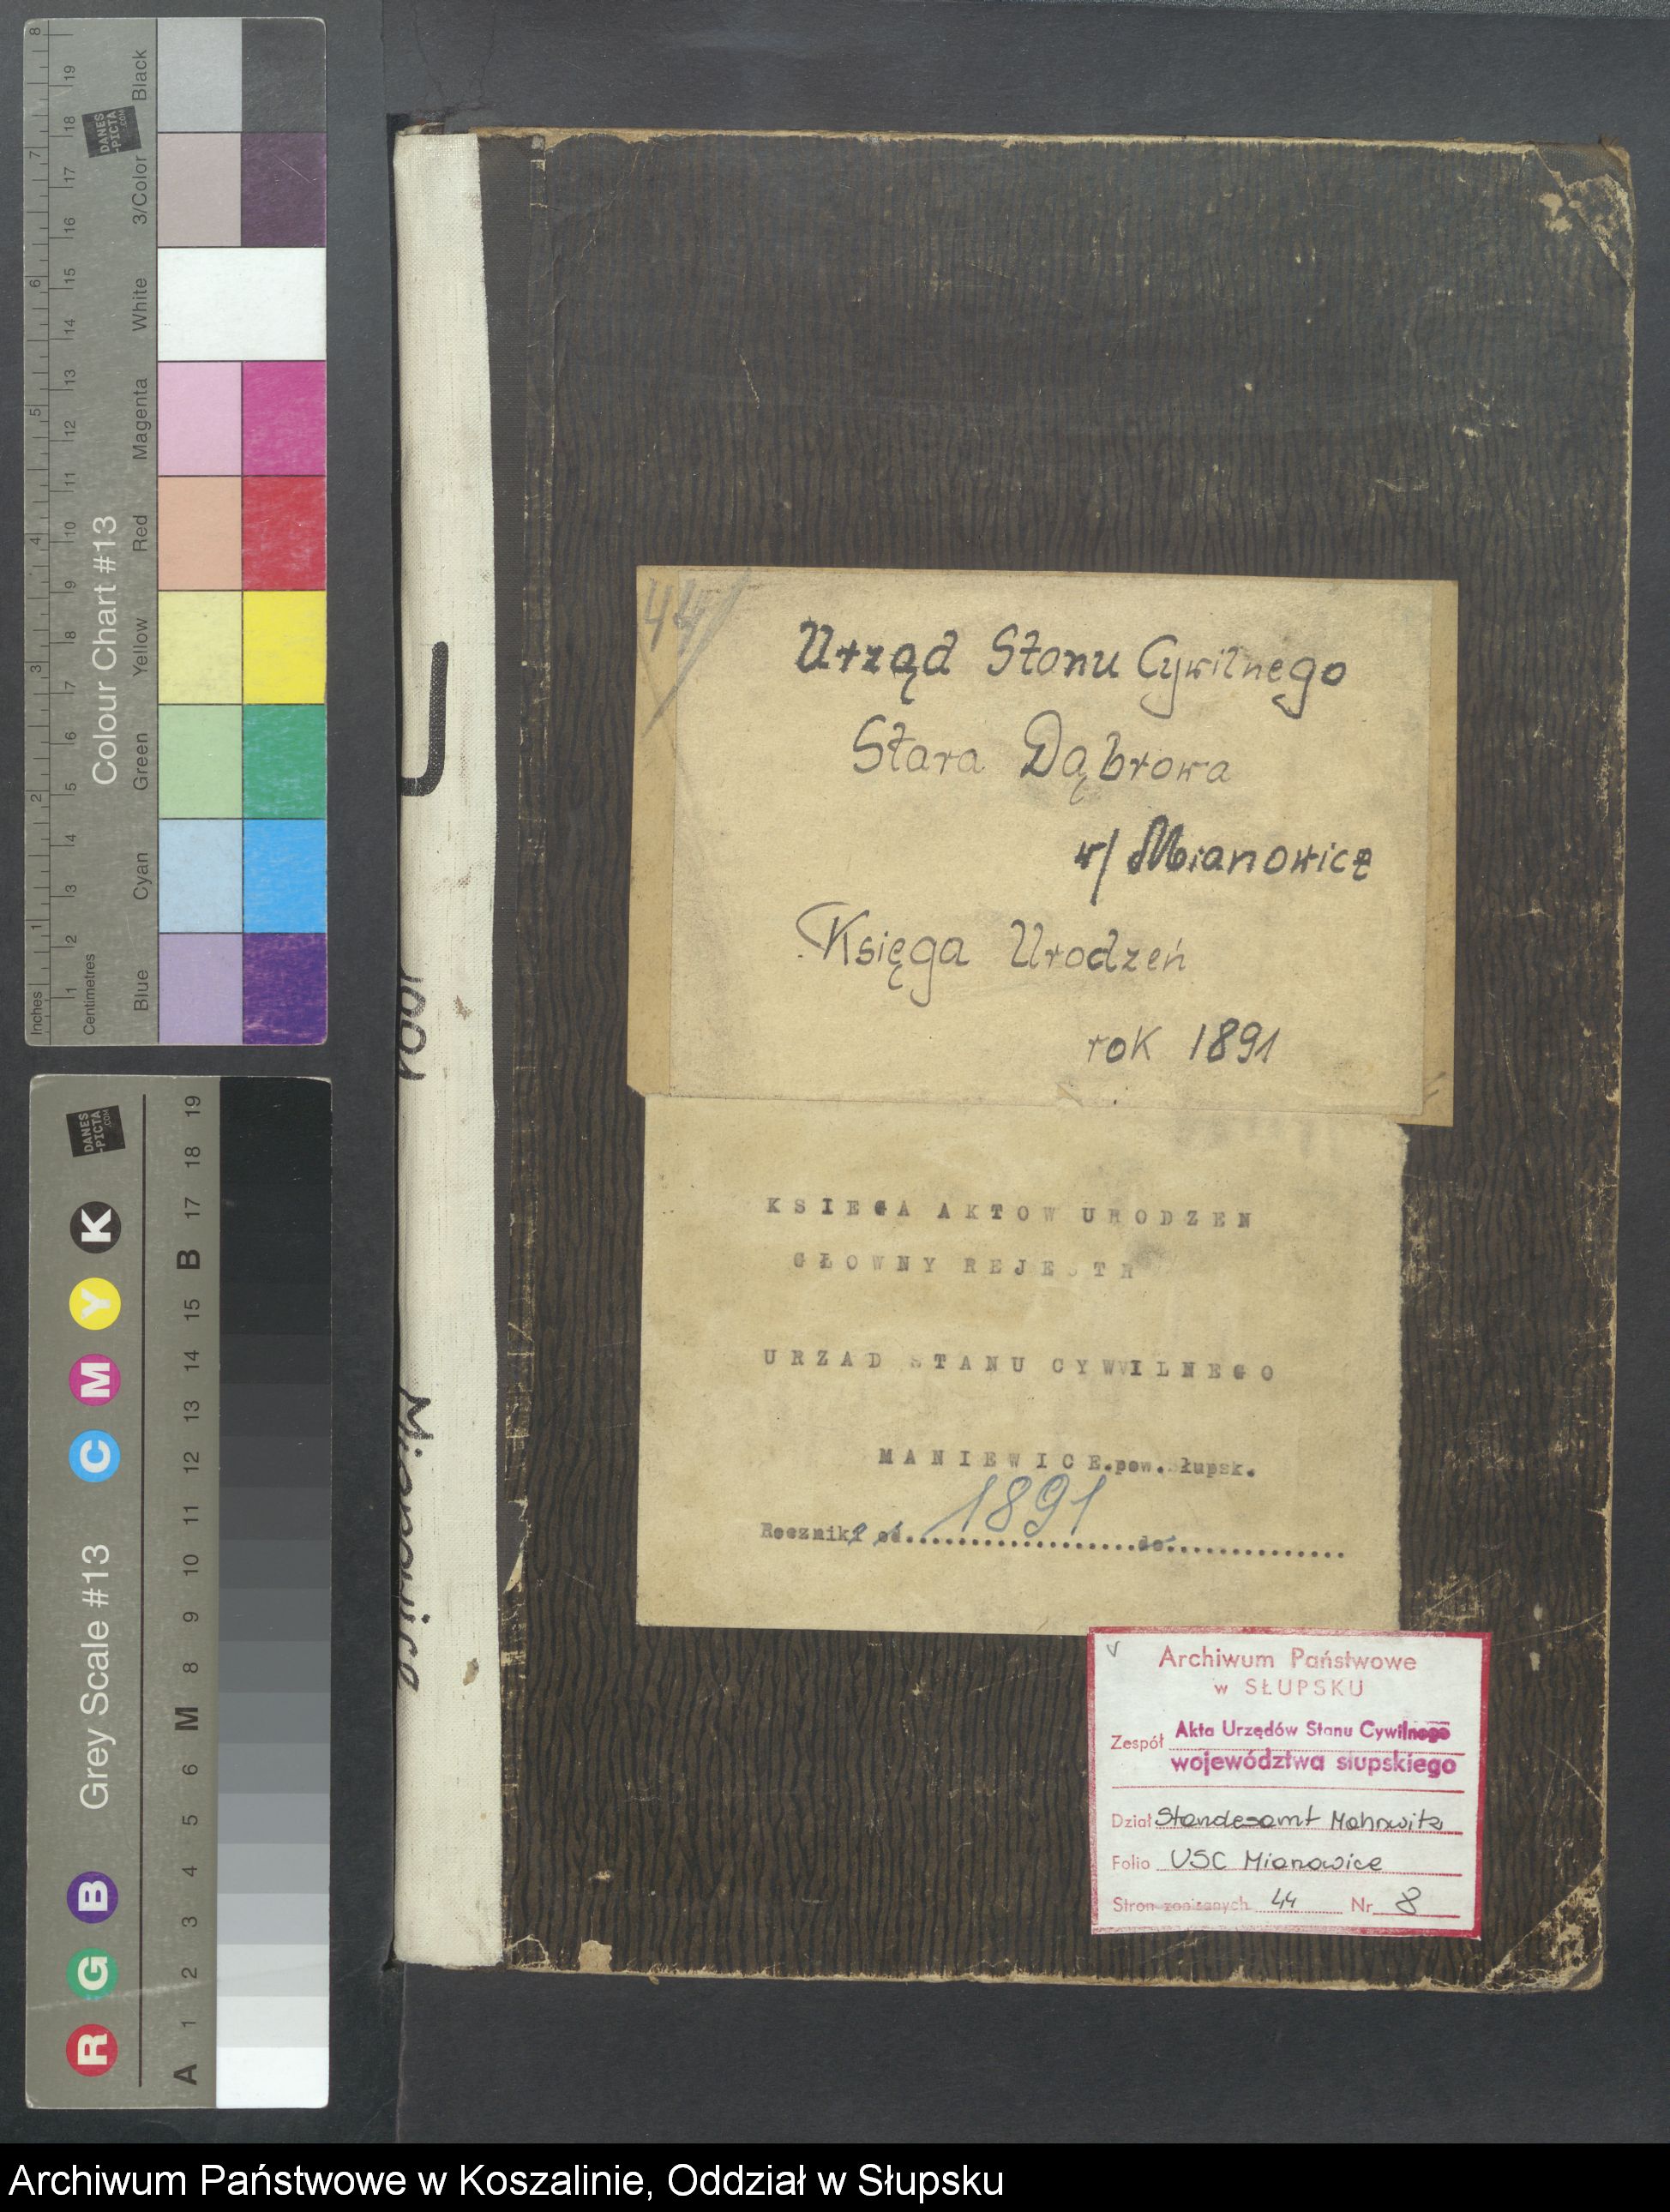 Inches 1 2 3 4 5 6 7 8
Centimetres 1 2 3 4 5 6 7 8 9 10 11 12 13 14 15 16 17 18 19
Colour Chart #13
Blue Cyan Green Yellow Red Magenta White 3/Color Black
DANES
-PICTA
.COM
Grey Scale #13
R G B C M Y K
A 1 2 3 4 5 6 M 8 9 10 11 12 13 14 15 B 17 18 19
DANES
-PICTA
.COM
U
1891
Mianowice
44
Urząd Stanu Cywilnego
Stara Dąbrowa
w/ Mianowice
Księga Urodzeń
rok 1891
KSIEGA AKTOW URODZEN
GŁOWNY REJESTR
URZAD STANU CYWVILNEGO
MANIEWICE.pow.Słupsk.
1891
Roczniki od....................do...............
Archiwum Państwowe
w SŁUPSKU
Zespół Akta Urzędów Stanu Cywilnego
województwa słupskiego
Dział Standesamt Mahnwitz
Folio USC Mianowice
Stron zapisanych 44 Nr 8
Archiwum Państwowe w Koszalinie, Oddział w Słupsku